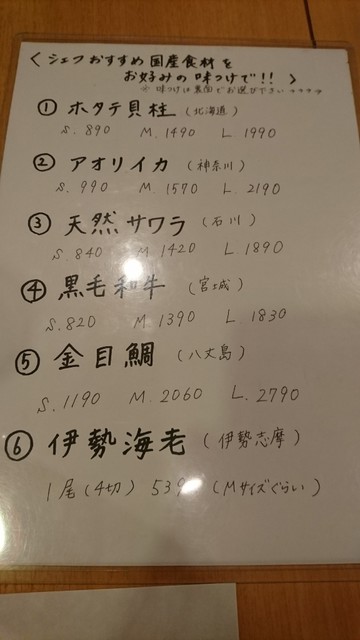 〈シェフおすすめ国産食材を
お好みの味つけで!!〉
※味つけは裏面でお選び下さい→→→→
① ホタテ貝柱 (北海道)
S. 890 M. 1490 L. 1990
② アオリイカ (神奈川)
S. 990 M. 1570 L. 2190
③ 天然サワラ (石川)
S. 840 M. 1420 L. 1890
④ 黒毛和牛 (宮城)
S. 820 M 1390 L 1830
⑤ 金目鯛 (八丈島)
S. 1190 M. 2060 L. 2790
⑥ 伊勢海老 (伊勢志摩)
1尾(4切) (Mサイズぐらい)